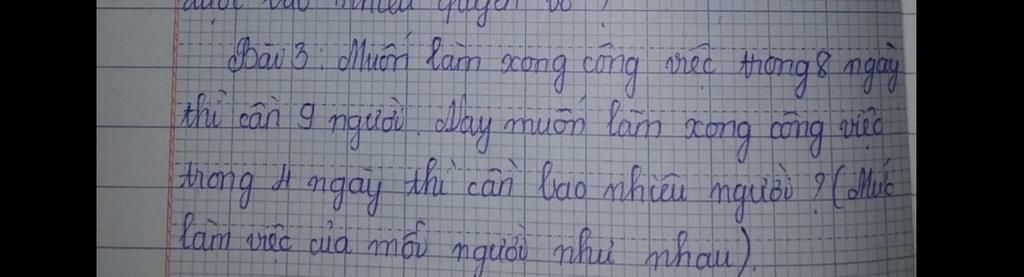 được bao nhiêu quyển vở ?
Bài 3 : Muốn làm xong công việc trong 8 ngày
thì cần 9 người. Nay muốn làm xong công việc
trong 4 ngày thì cần bao nhiêu người ? (Mức
làm việc của mỗi người như nhau).